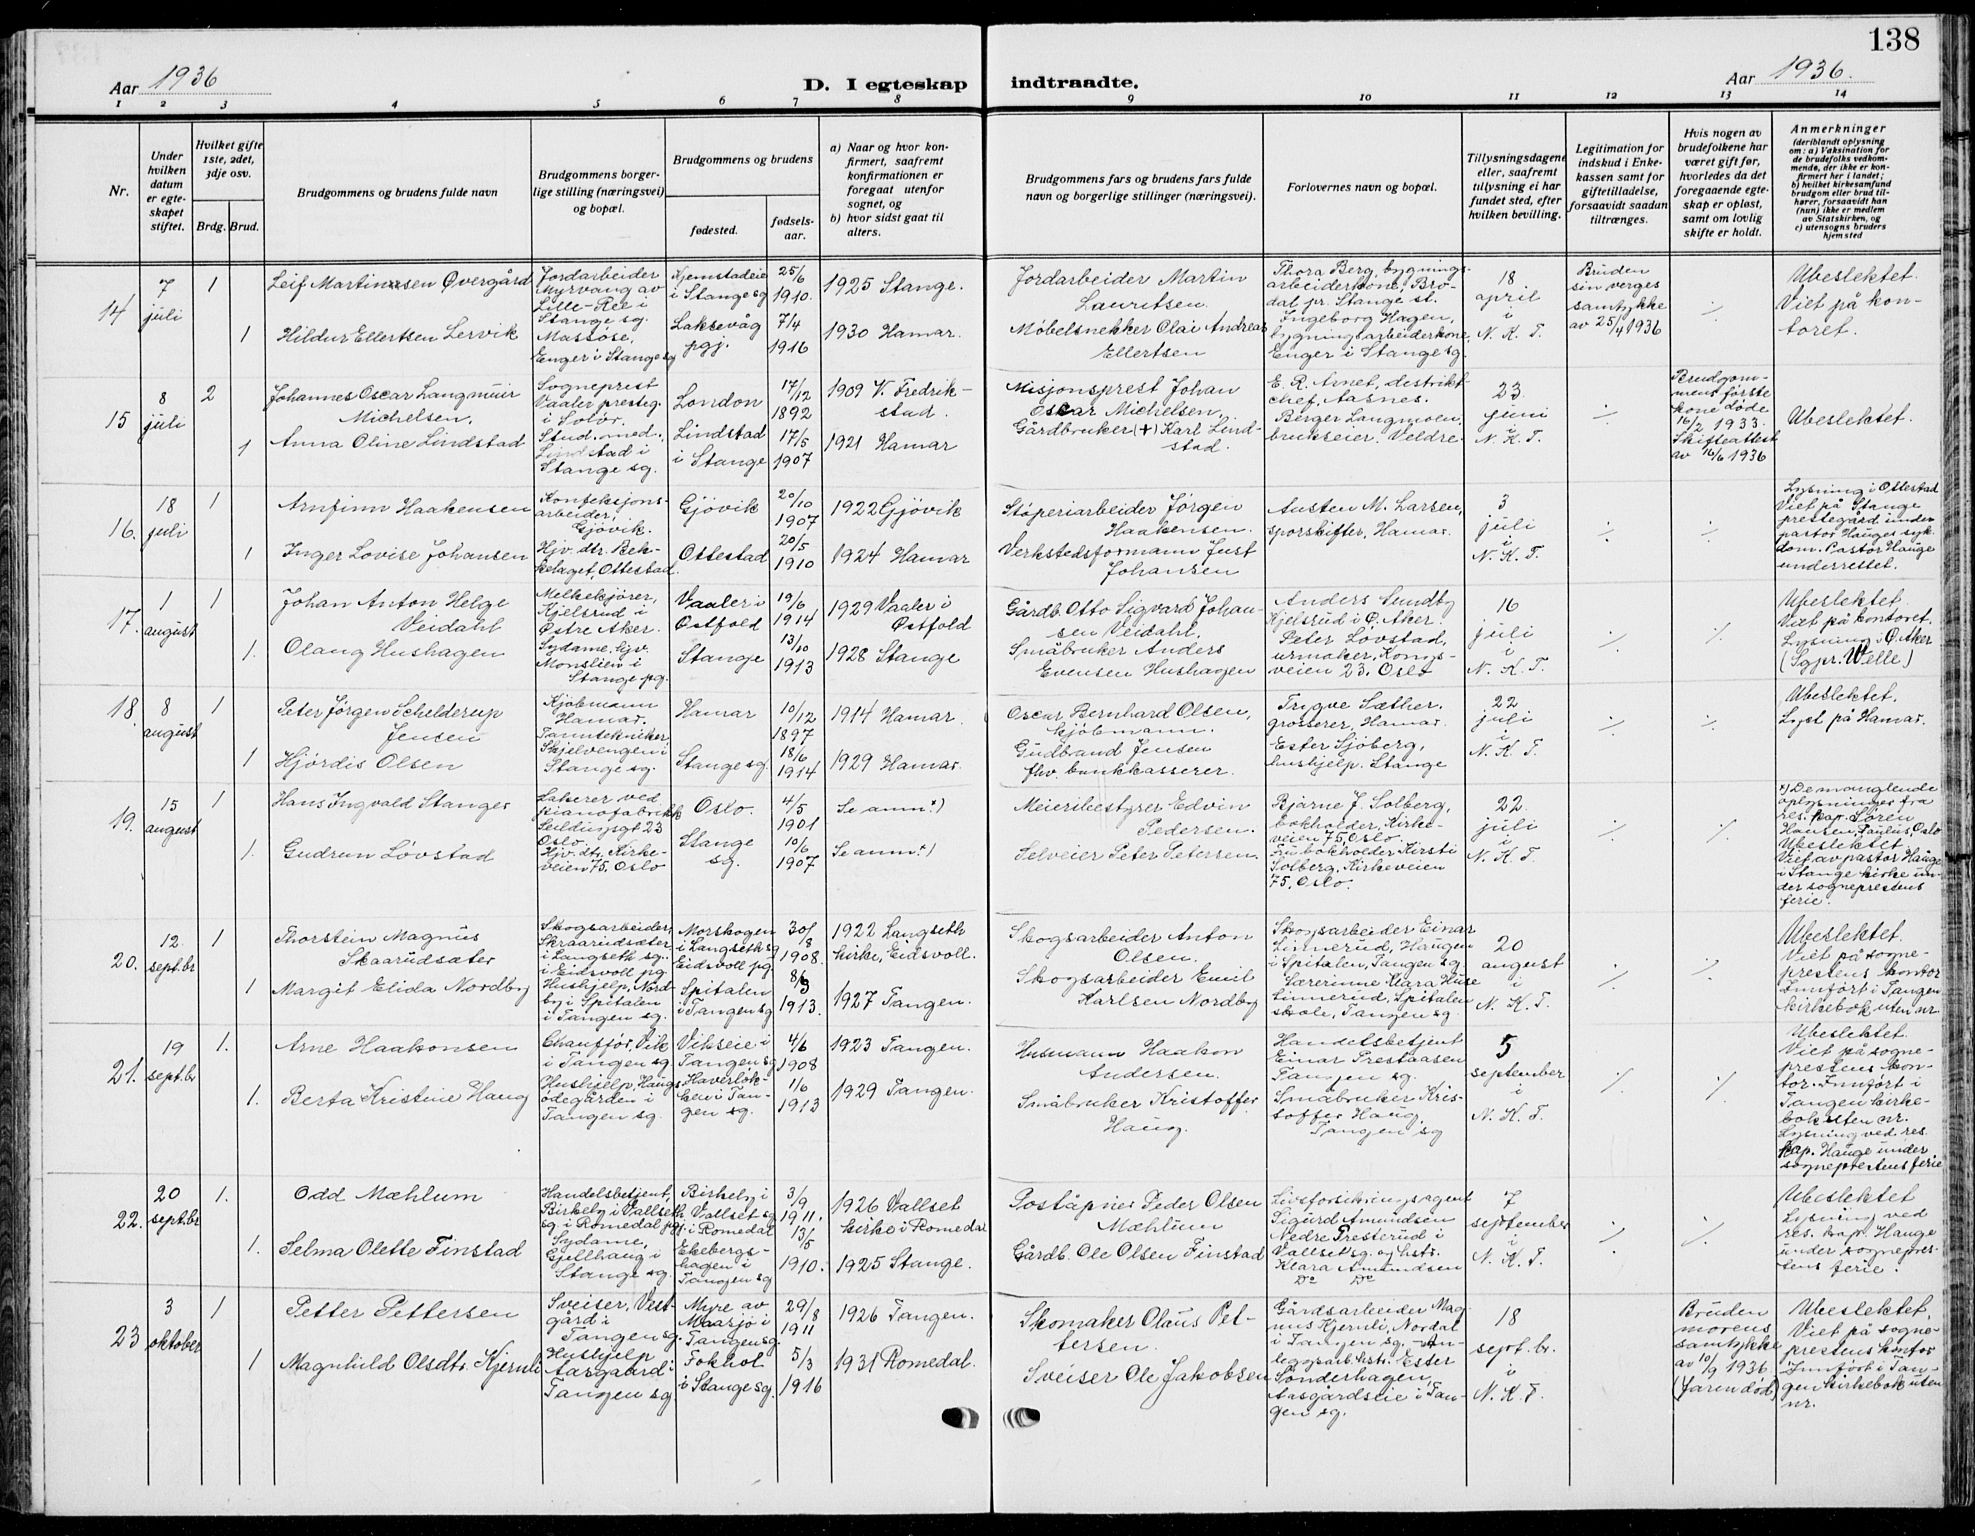 138
Aar 1936
D. I egteskap
indtraadte.
Aar 1936.
1 2 3 4 5 6 7 8 9 10 11 12 13 14
Nr.
Under hvilken datum er egteskapet stiftet.
Hvilket gifte 1ste, 2det, 3dje osv.
Brdg. Brud.
Brudgommens og brudens fulde navn
Brudgommens borgerlige stilling (næringsvei) og bopæl.
Brudgommens og brudens
fødested.
fødselsaar.
a) Naar og hvor konfirmert, saafremt konfirmationen er foregaat utenfor sognet, og
b) hvor sidst gaat til alters.
Brudgommens fars og brudens fars fulde navn og borgerlige stillinger (næringsvei).
Forlovernes navn og bopæl.
Tillysningsdagene eller, saafremt tillysning ei har fundet sted, efter hvilken bevilling.
Legitimation for indskud i Enkekassen samt for giftetilladelse, forsaavidt saadan tiltrænges.
Hvis nogen av brudefolkene har været gift før, hvorledes da det foregaaende egteskap er opløst, samt om lovlig skifte er holdt.
Anmerkninger
(deriblandt oplysning om: a) Vaksination for de brudefolks vedkommende, der ikke er konfirmert her i landet;
b) hvilket kirkesamfund brudgom eller brud tilhører, forsaavidt han (hun) ikke er medlem av Statskirken, og
c) utensogns bruders hjemsted
14
7 juli
1
Leif Martinsen Øvergård
Jordarbeider
Myrvang av
Lille-Ree i
Stange sg.
Kjemstadeie
i Stange sg
25/6
1910.
1925 Stange.
Jordarbeider Martin
Lauritsen
Thora Berg, bygnings-
arbeiderkone, Bro-
dal pr. Stange st.
18
april
i
N. K. T.
Bruden
sin verges
samtykke
av 25/4 1936
Ubeslektet.
Viet på kon-
toret.
1
Hildur Ellertsen Lervik
Massøse,
Enger i Stange sg
Laksevåg
pgj.
7/4
1916
1930 Hamar.
Møbelsnekker Olai Andreas
Ellertsen
Ingeborg Hagen,
bygningsarbeiderkone,
Enger i Stange sg.
15
8
juli
2
Johannes Oscar Langmuir
Michelsen.
Sogneprest
Vaaler presteg.
i Solør.
London
17/12
1892
1909 V. Fredrik-
stad.
Misjonsprest Johan
Oscar Michelsen,
E. R. Arnet, destrikt-
chef, Aasnes.
23.
juni
i
N. K. T.
Brudgom-
mens første
kone døde
16/2 1933.
Skifteattest
av 16/6 1936
Ubeslektet.
1
Anna Oline Lindstad
Stud. med.,
Lindstad i
Stange sg.
Lindstad
i Stange
17/5
1907
1921 Hamar
Gårdbruker (+) Karl Lind-
stad.
Berger Langmoen,
brukseier. Veldre.
16.
18
juli
1
Arnfinn Haakensen
Konfeksjons-
arbeider,
Gjøvik.
Gjøvik
20/10
1907
1922 Gjøvik
Støperiarbeider Jørgen
Haakensen.
Austen M. Larsen,
sporskifter, Hamar.
3
juli
i
N. K. T.
Lysning i Ottestad
Viet på Stange
prestegård under
pastor Hauges syk-
dom. Pastor Hauge
underrettet.
1
Inger Lovise Johansen
Hjv. dtr. Bek-
kelaget, Ottestad.
Ottestad
20/5
1910
1924 Hamar
Verkstedsformann Just
Johansen
17.
1
august
1
Johan Anton Helge
Veidahl
Melkekjører,
Kjelsrud i
Østre Aker.
Vaaler i
Østfold
19/6
1914
1929 Vaaler i
Østfold
Gårdb. Otto Sigvard Johan-
sen Veidahl.
Anders Sundby
Kjelsrud i Ø. Aker.
16
juli
i
N. K. T.
Ubeslektet.
Viet på kontoret.
Lysning i Ø. Aker
(Sgpr. Welle)
1.
Olaug Hushagen
Sydame, hjv.
Monslien i
Stange pg.
Stange
13/10
1913
1928 Stange
Småbruker Anders
Evensen Hushagen
Peter Løvstad,
urmaker, Kongs-
veien 23. Oslo
18.
8
august
1
Peter Jørgen Schelderup
Jensen
Kjøbmann
Hamar.
Hamar
10/12
1897
1914 Hamar.
Oscar Bernhard Olsen,
kjøbmann.
Trygve Sæther,
grosserer, Hamar.
22
juli
i
N. K. T.
Ubeslektet.
Lyst på Hamar.
1
Hjørdis Olsen
Tanntekniker
Skjelvengen i
Stange sg.
Stange sg.
18/6
1914
1929 Hamar.
Gudbrand Jensen
fhv. bankkasserer.
Ester Sjøberg,
hushjelp. Stange
19.
15
august
1
Hans Ingvald Stanger
Lakerer ved
pianofabrikk
Seildugsgt 23
Oslo.
Oslo.
4/5
1901
Se anm. x)
Meieribestyrer Edvin
Pedersen.
Bjarne J. Solberg,
bokholder, Kirke-
veien 75, Oslo.
22.
juli
i
N. K. T.
x) De manglende
oplysninger fra
res. kap. Søren
Hansen, Paulus, Oslo
Ubeslektet.
Viet av pastor Hauge
i Stange kirke un-
der sogneprestens
ferie.
1.
Gudrun Løvstad
Hjv. dtr. Kirke-
veien 75. Oslo
Stange
sg.
10/6
1907
Se anm. x)
Selveier Peter Petersen.
Fru bokholder Kirsti
Solberg, Kirkeveien
75, Oslo.
20.
12.
sept.br
1
Thorstein Magnus
Skaarudsæter
Skogsarbeider,
Skraarudsæter
i Langseth sg.
i Eidsvoll pg
Morskogen
i Langseth sg
Eidsvoll pg
30/8
1908.
1922 Langseth
kirke, Eidsvoll.
Skogsarbeider Anton
Olsen.
Skogsarbeider Einar
Linnerud, Haugen
i Spitalen, Tangen sg
20
august
i
N. K. T.
Ubeslektet.
Viet på sogne-
prestens kontor
Innført i Tangen
kirkebok uten nr.
1
Margit Elida Nordby
Hushjelp, Nord-
by i Spitalen
i Tangen sg.
Spitalen
i Tangen sg
8/3
1913.
1927 Tangen.
Skogsarbeider Emil
Karlsen Nordby
Lærerinne Klara Huse
Linnerud, Spitalen
skole, Tangen sg.
21.
19
sept.br
1.
Arne Haakonsen
Chauffør, Vik
i Tangen sg
Vikseie i
Tangen sg
4/6
1908
1923 Tangen.
Husmann Haakon
Andersen.
Handelsbetjent
Einar Prestaasen
Tangen sg.
5
september
i
N. K. T.
Ubeslektet.
Viet på sogne-
prestens kon-
tor. Innført i
Tangen kirke-
bok uten nr.
Lysning ved res.
kap. Hauge under
sogneprestens ferie
1.
Berta Kristine Haug
Hushjelp, Haugs-
ødegården i
Tangen sg.
i Tan-
gen sg.
1/6
1913
1929 Tangen.
Småbruker Kristoffer
Haug.
Småbruker Kris-
toffer Haug,
Tangen sg
22.
20
sept.br
1.
Odd Mæhlum
Handelsbetjent,
Birkeby i Vallset
sg. i Romedal pgj.
Birkeby i
Vallset sg
i Romedal
3/9
1911.
1926 Vallset
kirke i Romedal
Poståpner Peder Olsen
Mæhlum
Livsforsikringsagent
Sigurd Amundsen
Nedre Presterud i
Vallset sg. og hstr.
Klara Amundsen
Do Do
7
september
i
N. K. T.
Ubeslektet
Lysning ved
res. kap. Hauge
under sognepres-
tens ferie.
1.
Selma Olette Finstad
Sydame,
Gjellhaug i
Stange sg.
Ekebergs-
hagen i
Tangen sg
13/5
1910.
1925 Stange.
Gårdb. Ole Olsen Finstad
23
3
oktober
1
Petter Pettersen
Sveiser, Vest-
gård i
Tangen sg.
Myre av
Maarsjø i
Tangen sg.
29/8
1911
1926 Tangen.
Skomaker Olaus Pet-
tersen.
Gårdsarbeider Mag-
nus Kjernli, Nordal
i Tangen sg. – An-
leggsarb. hstr. Ester
Sønderhagen,
Aasgårdseie i Tan-
gen sg.
18
sept. br.
i
N. K. T.
Bruden
morens
samtykke
av 10/9 1936
(faren død)
Ubeslektet.
Viet på sogne-
prestens kontor
Innført i Tan-
gen kirkebok uten
nr.
1
Magnhild Olsdtr. Kjernli
Hushjelp
Aasgaard
Tangen sg.
Fokhol
i Stange sg.
5/3
1916
1931 Romedal.
Sveiser Ole Jakobsen